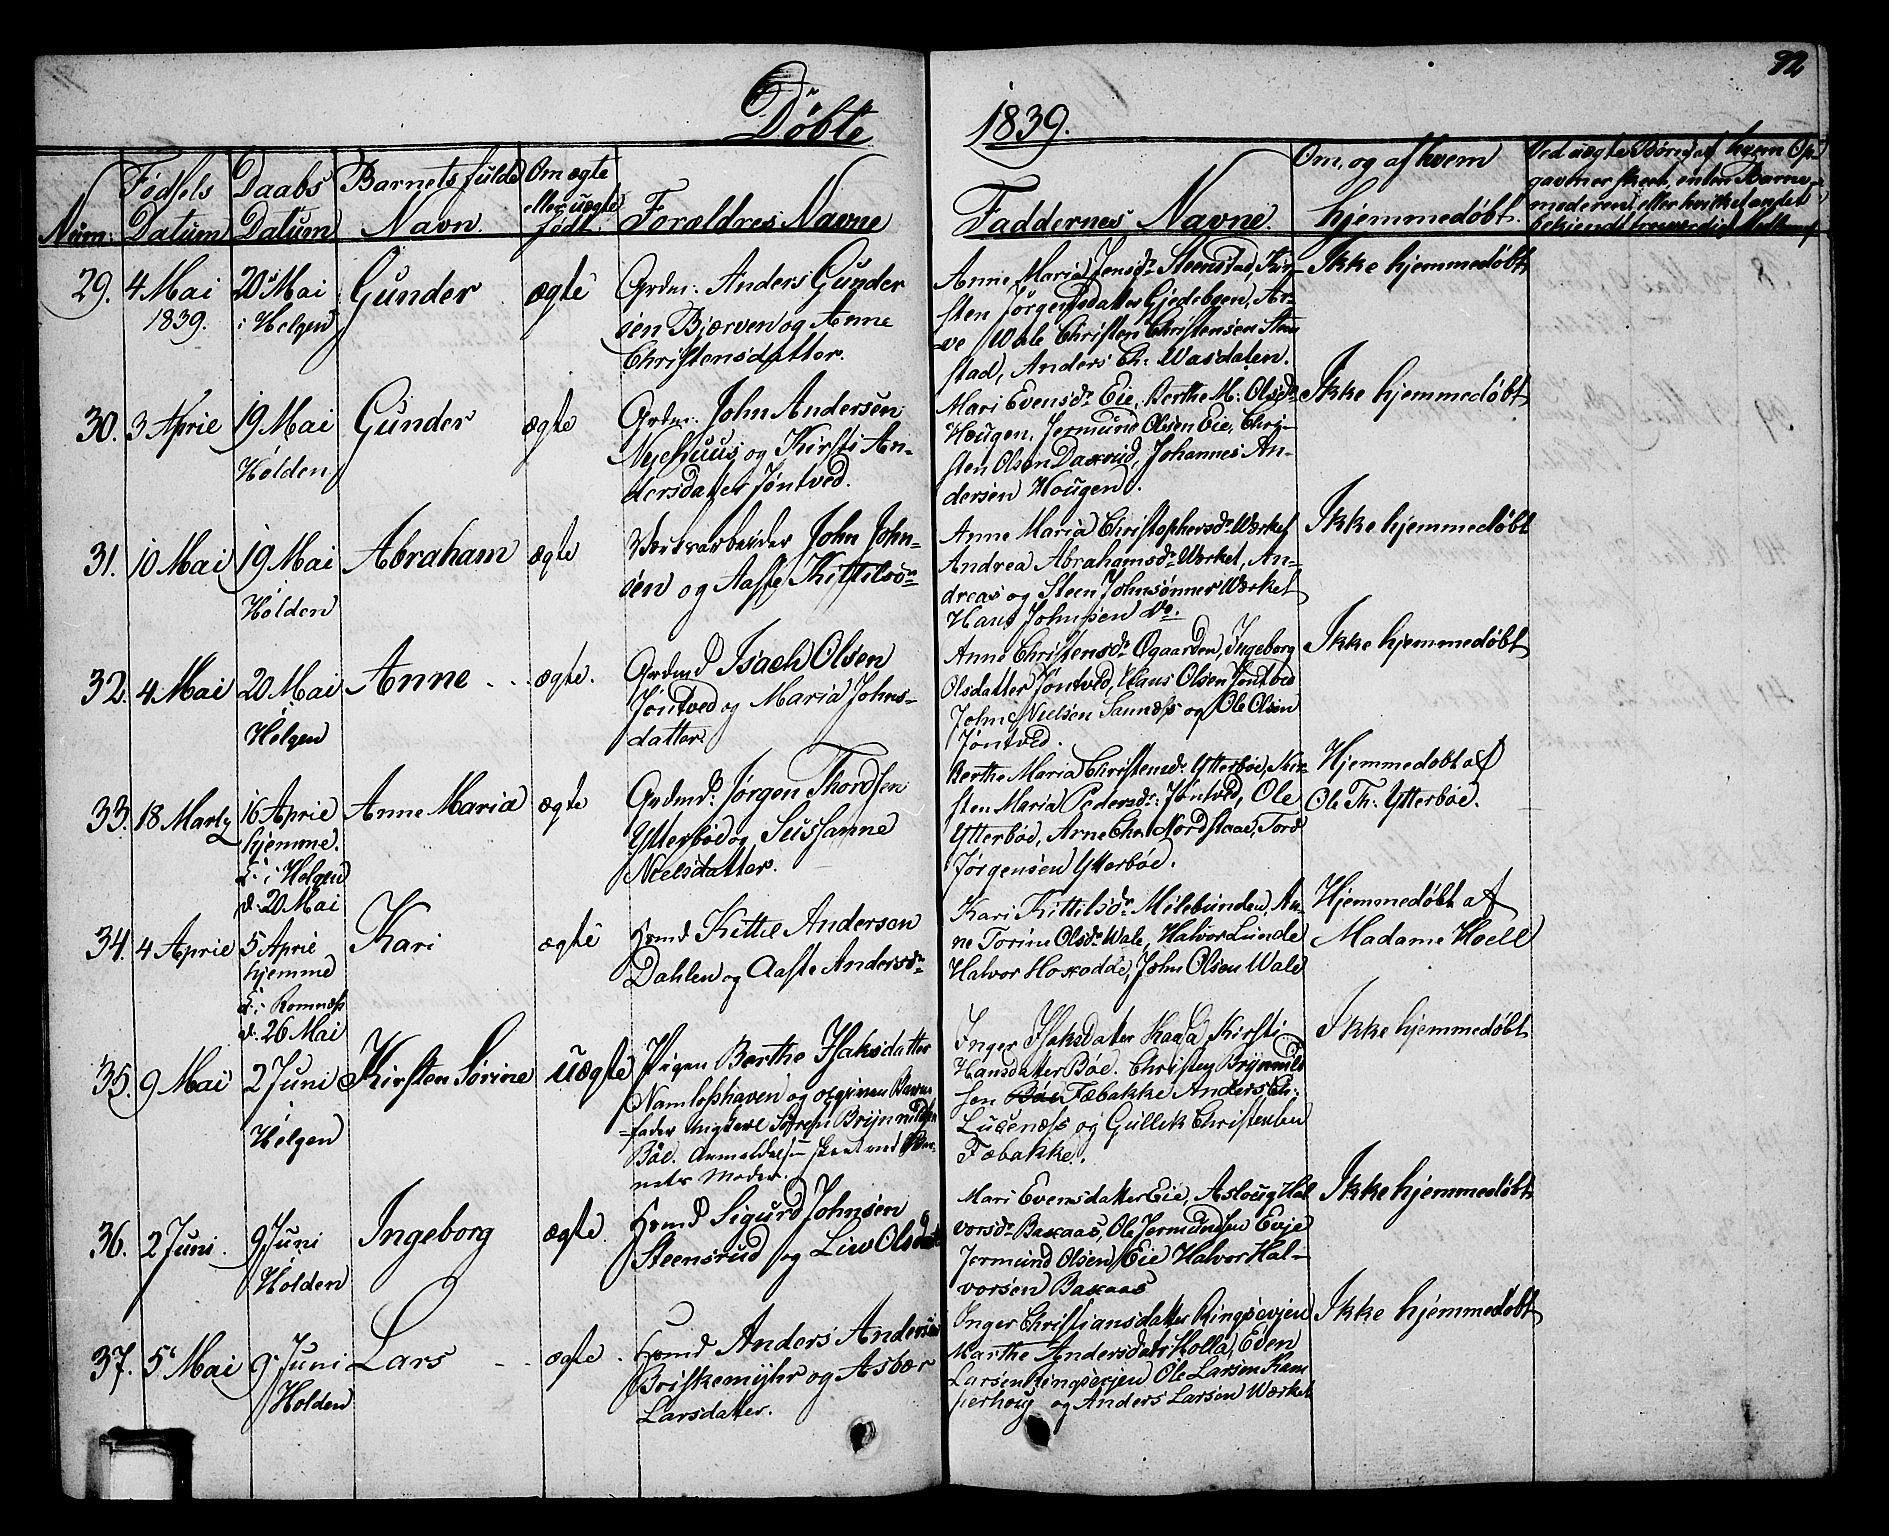 92
Døbte 1839.
Num:
Fødsels
Datum
Daabs
Datum
Barnets fulde
Navn.
Om ægte
eller uægte
født.
Forældres Navne
Faddernes Navne.
Om, og af hvem
hjemmedøbt.
Ved uægte Børn, af hvem Op-
gaven er skeet, enten Barne-
moderen, eller hvilket andet
bekiendt troværdigt Menneske
29.
4 Mai
1839.
20 Mai
i Helgen
Gunder
ægte
Grdm: Anders Gunder
sen Bjærven og Anne
Christensdatter.
Anne Maria Jensdr Steenstad, Kir-
sten Jørgensdatter Gjedeboen, Ar-
ve Wale Christen Christensen Steen
stad, Anders Ch: Wasdalen.
Ikke hjemmedøbt
30.
3 April
19 Mai
Holden
Gunder
ægte
Grdm: John Andersen
Nyehuus og Kirsti An-
dersdatter Jøntved.
Mari Evensdr Eie, Berthe M: Olsdr
Hougen, Jermund Olsen Eie, Chri-
sten Olsen Daxrud, Johannes An-
dersen Hougen.
Ikke hjemmedøbt
31.
10 Mai
19 Mai
Holden
Abraham
ægte
Værksarbeider John John-
sen og Aaste Kittilsdr
Anne Maria Christophersdr Værket
Andrea Abrahamsdr Værket, An-
dreas og Steen Johnsønner Værket
Hans Johnsen do.
Ikke hjemmedøbt
32.
4 Mai
20 Mai
Helgen
Anne
ægte.
Grdmd Isach Olsen
Jøntved og Maria Johns-
datter.
Anne Christensdr Øgaarden, Ingeborg
Olsdatter Jøntved, Hans Olsen Jøntved
John Nielsen Saunæss og Ole Olsen
Jøntved.
Ikke hjemmedøbt
33.
18 Martz
16 April
hjemme.
i Helgen
d. 20 Mai
Anne Maria
ægte
Grdmd: Jørgen Thordsen
Ytterbøe og Sussanne
Nielsdatter.
Berthe Maria Christensdr Ytterbøe, Kir-
sten Maria Pedersdr: Jøntved, Ole
Ytterbøe, Arne Chr. Nordstaae, Tord
Jørgensen Ytterbøe.
Hjemmedøbt af
Ole Th: Ytterbøe.
34.
4 April
5 April
hjemme
i Romnæss
d. 26 Mai
Kari
ægte
Hsmd Kittil Andersen
Dahlen og Aaste Andersdr
Kari Kittilsdr Milebunden, An-
ne Torine Olsdr Wale, Halvor Lunde
Halvor Hoxodde, John Olsen Wale
Hjemmedøbt af
Madame Hoell
35.
9 Mai
2 Juni
Helgen
Kirsten Sørine
uægte
Pigen Berthe Isaksdatter
Namløshaven og opgiven Barne-
fader Ungkarl Søfren Brynnildsen
Bøe. Anmeldelsen skeet ved Bar-
nets Moder.
Inger Isaksdatter Kaasa, Kirsti
Hansdatter Bøe. Christen Brynnild
sen Bøe Fæbakke Anders Ch:
Lucenæss og Gullik Christensen
Fæbakke.
Ikke hjemmedøbt
36.
2 Juni.
9 Juni
Holden
Ingeborg
ægte.
Hsmd Sigurd Johnsen
Steensrud og Liv Olsdatter
Mari Evensdatter Eie, Asloug Hal
vorsdr Baxaas, Ole Jermundsen Evje
Jermund Olsen Eie Halvor Hal-
vorsen Baxaas
Ikke hjemmedøbt
37.
5 Mai
9 Juni
Holden
Lars
ægte.
Hsmd Anders Andersen
Briskemyhr og Asbær
Larsdatter.
Inger Christiansdatter Ringsevjen
Marthe Andersdatter Holla, Even
Larsen Ringsevjen Ole Larsen Kam
perhoug og Anders Larsen Værket
Ikke hjemmedøbt